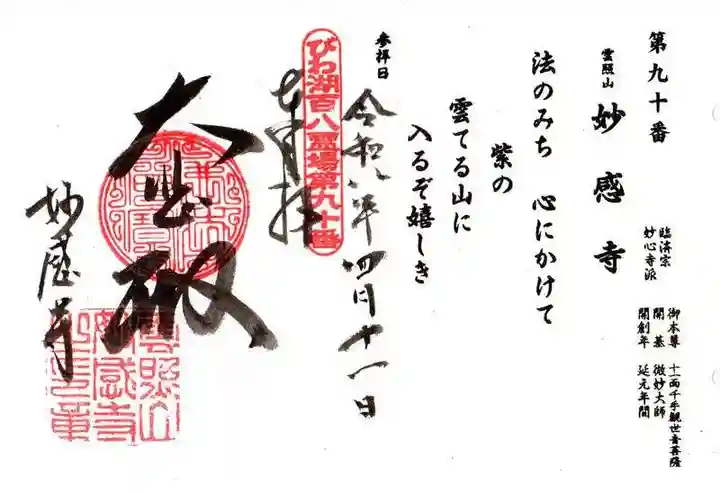 第九十番
雲照山
妙感寺
臨済宗
妙心寺派
御本尊 十一面千手観世音菩薩
開基 微妙大師
開創年 延元年間
法のみち 心にかけて
紫の
雲てる山に
入るぞ嬉しき
参拝日
令和八年四月十一日
びわ湖百八霊場第九十番
奉拝
大悲殿
妙感寺